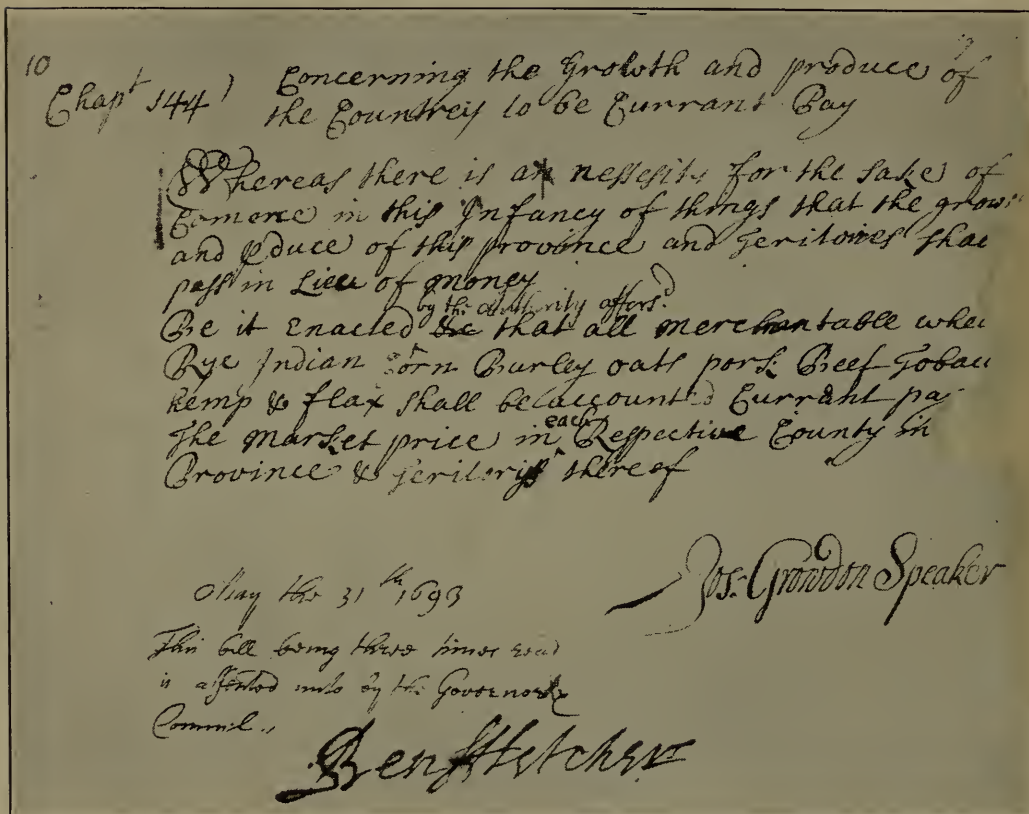 10
Chapt 144) Concerning the Growth and produce of
the Countrey to be Currant Pay
Whereas there is an nessesity for the sake of
Comerce in this Infancy of things that the grow
and pduce of this province and Teritories shal
pass in Lieu of money
by the authority affors:d
Be it Enacted &c that all merchantable whea
Rye Indian Corn Barley oats pork Beef Tobacc
hemp & flax shall be accounted Currant pa
each
The market price in Respective County in
Province & Teritorys thereof
Jos: Growdon Speaker
May the 31th 1693
This bill being three times read
is assented unto by the Governor &
Councill.
Ben ffletcher